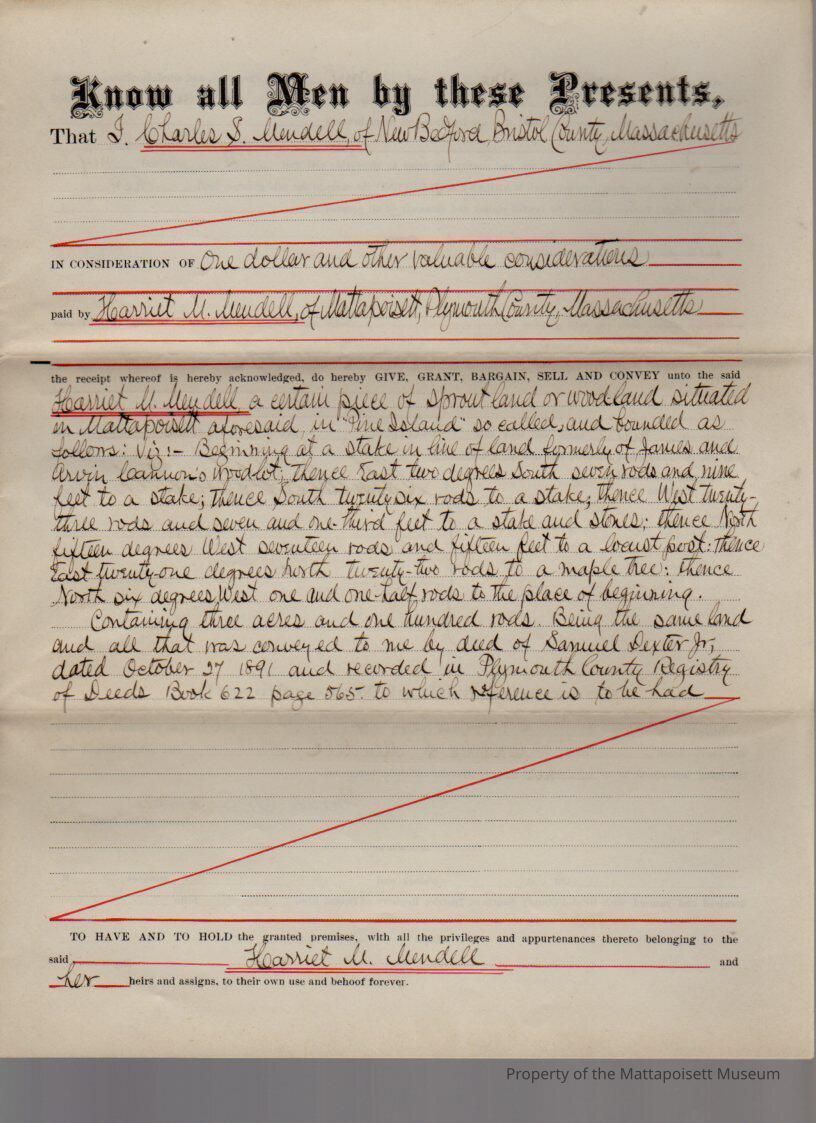 Know all Men by these Presents,
That I, Charles S. Mendell, of New Bedford, Bristol County, Massachusetts
IN CONSIDERATION OF One dollar and other valuable considerations
paid by Harriet M. Mendell, of Mattapoisett, Plymouth County, Massachusetts
the receipt whereof is hereby acknowledged, do hereby GIVE, GRANT, BARGAIN, SELL AND CONVEY unto the said
Harriet M. Mendell, a certain piece of sproutland or woodland situated
in Mattapoisett aforesaid, in "Pine Island" so called, and bounded as
follows: Viz:- Beginning at a stake in line of land formerly of James and
Arvin Cannon's woodlot; thence East two degrees South seven rods and nine
feet to a stake; thence South twenty six rods to a stake; thence West twenty-
three rods and seven and one-third feet to a stake and stones: thence North
fifteen degrees West seventeen rods and fifteen feet to a locust post: thence
East twenty-one degrees North twenty-two rods to a maple tree: thence
North six degrees West one and one-half rods to the place of beginning.
Containing three acres and one hundred rods. Being the same land
and all that was conveyed to me by deed of Samuel Dexter Jr,
dated October 27 1891 and recorded in Plymouth County Registry
of Deeds Book 622 page 565. to which reference is to be had
TO HAVE AND TO HOLD the granted premises, with all the privileges and appurtenances thereto belonging to the
said Harriet M. Mendell and
her heirs and assigns, to their own use and behoof forever.
Property of the Mattapoisett Museum